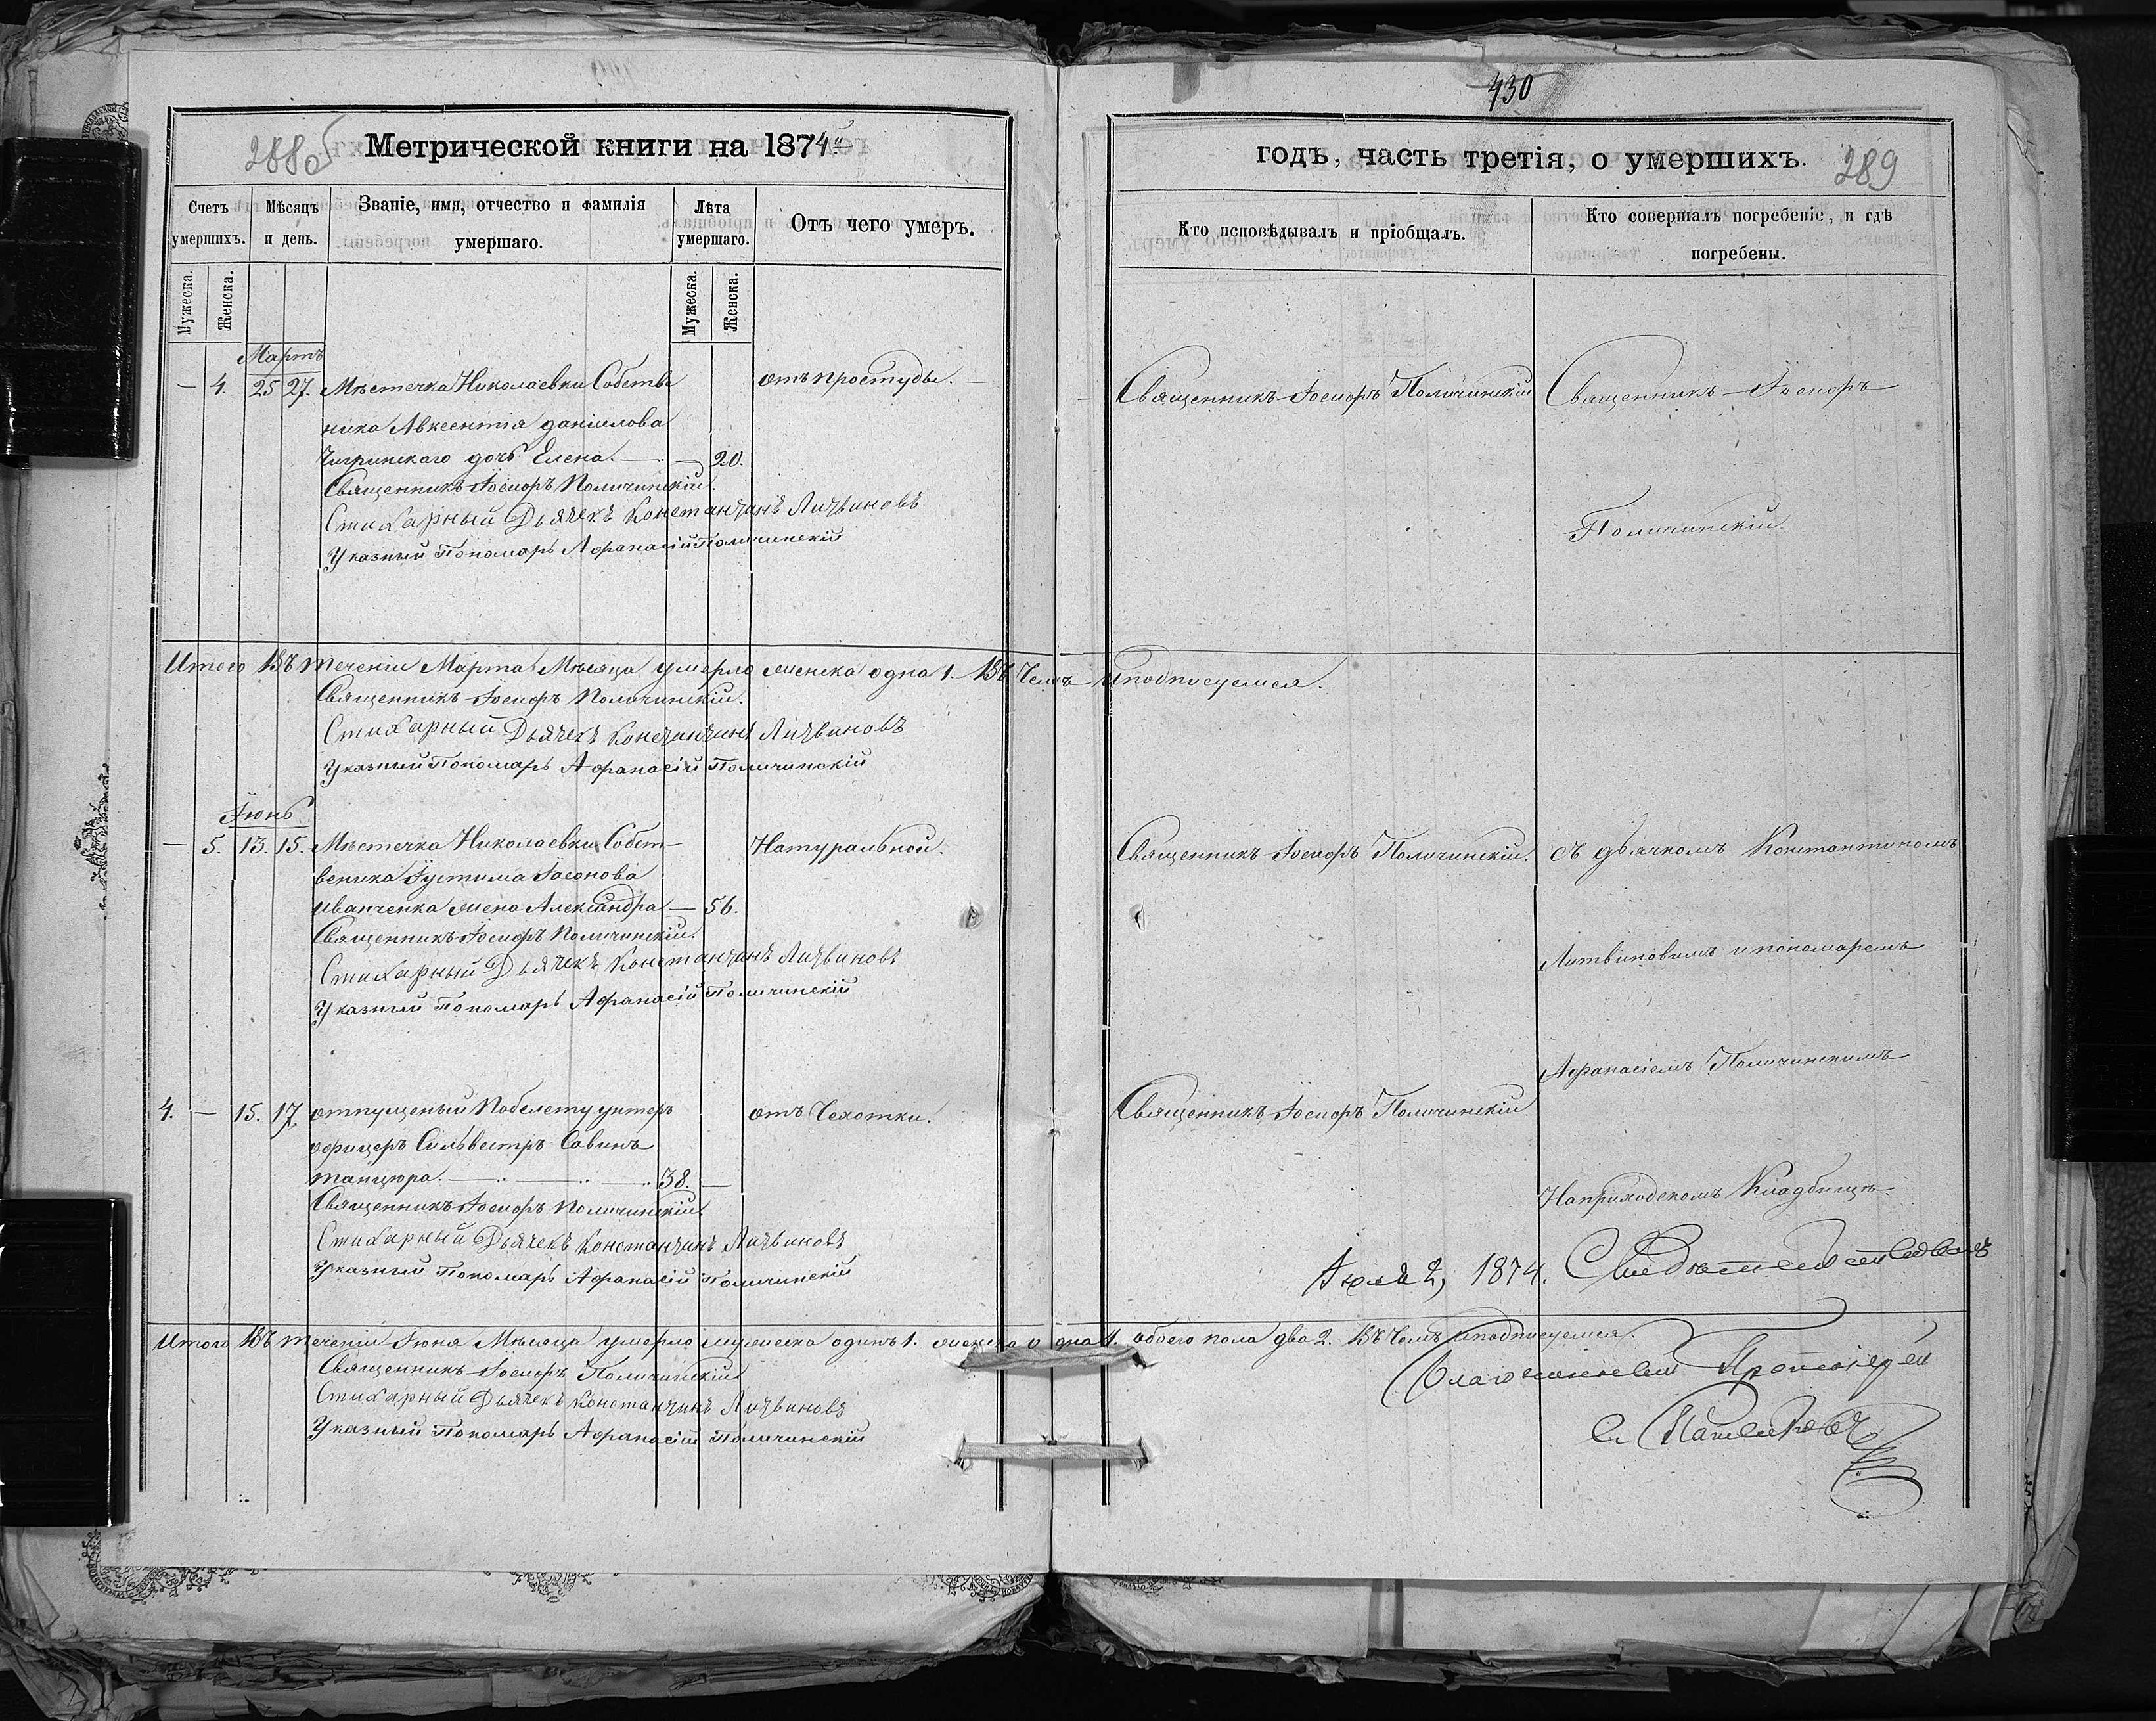 288об
Метрической книги на 1874й
Счетъ умершихъ.
Мѣсяцъ и день.
Званіе, имя, отчество и фамилія умершаго.
Лѣта умершаго.
Отъ чего умеръ.
Мужеска.
Женска.
Мужеска.
Женска.
Мартъ
— 4. 25 27. Мѣстечка Николаевки Собстве отъ простуды. —
ника Авксентія Даніилова
Чигринскаго дочь Елена. — — 20.
Священникъ Іосифъ Поличинскій.
Стихарный Дьячекъ Константинъ Литвиновъ
Указный Пономарь Афанасій Поличинскій
Итого Въ теченіи Марта Мѣсяца умерло женска одна 1. Въ Чемъ
Священникъ Іосифъ Поличинскій.
Стихарный Дьячекъ Константинъ Литвиновъ
Указный Пономарь Афанасій Поличинскій
Іюнь
— 5. 13. 15. Мѣстечка Николаевки Собст- Натуральной.
веника Іустима Іасонова
Иванченка жена Александра — 56.
Священникъ Іосифъ Поличинскій.
Стихарный Дьячекъ Константинъ Литвиновъ
Указный Пономарь Афанасій Поличинскій
4. — 15. 17. отпущеный Побелету унтеръ отъ Чехотки.
офицеръ Сильвестръ Савинъ
танцюра. — 38. —
Священникъ Іосифъ Поличинскій.
Стихарный Дьячекъ Константинъ Литвиновъ
Указный Пономарь Афанасій Поличинскій
Итого Въ теченіи Іюня Мѣсяца умерло мужеска одинъ 1. женска одна 1.
Священникъ Іосифъ Поличинскій
Стихарный Дьячекъ Константинъ Литвиновъ
Указный Пономарь Афанасій Поличинскій
430
годъ, часть третія, о умершихъ.
289
Кто исповѣдывалъ и пріобщалъ.
Кто совершалъ погребеніе, и гдѣ погребены.
Священникъ Іосифъ Поличинскій Священникъ — Іосифъ
Поличинскій.
Иподписуемся.
Священникъ Іосифъ Поличинскій. съ дьячкомъ Константиномъ
Литвиновимъ и пономаремъ
Афанасіемъ Поличинскимъ
Священникъ Іосифъ Поличинскій.
Наприходскомъ Кладбищѣ.
Іюля 2, 1874. Свидѣтельствовалъ
обоего пола два 2. Въ Чемъ Иподписуемся.
Благочинный Протоіерей